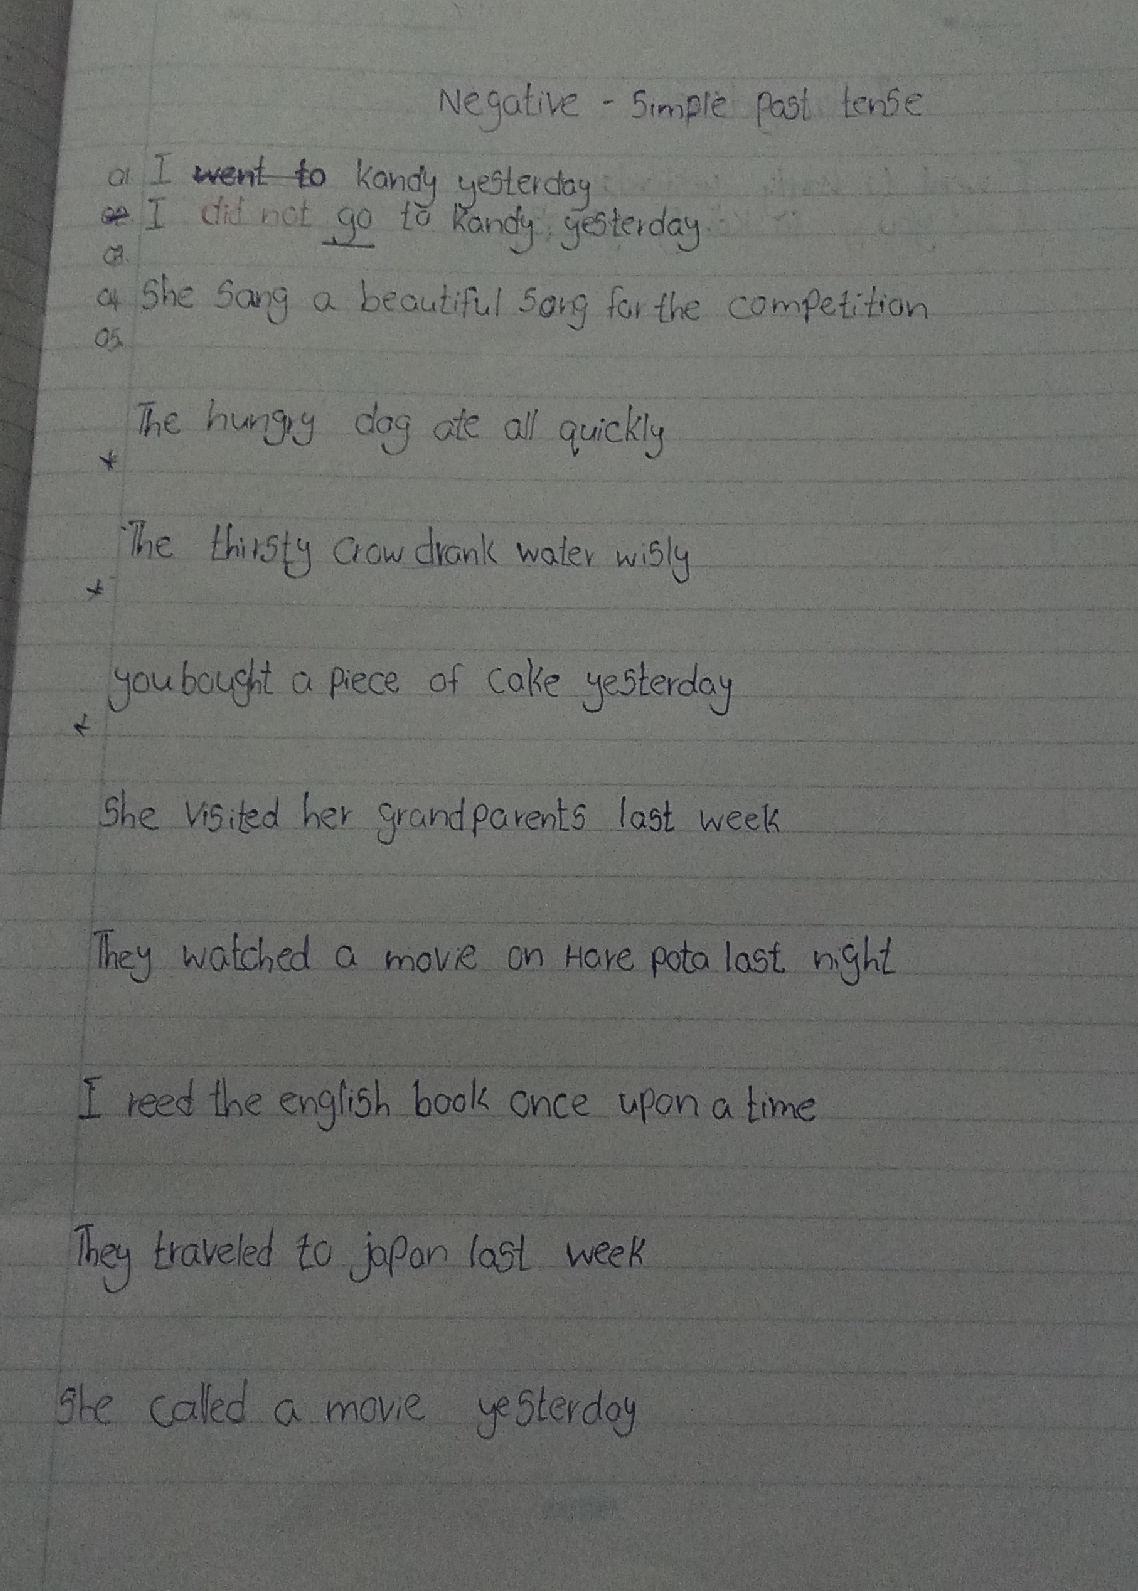 Negative - Simple past tense
01 I went to Kandy yesterday
02 I did not go to Kandy yesterday.
03.
04 She Sang a beautiful Song for the competition
05.
The hungry dog ate all quickly
*
The thirsty crow drank water wisly
*
you bought a piece of cake yesterday
*
She visited her grandparents last week
They watched a movie on Hare pota last night
I reed the english book once upon a time
They traveled to japan last week
She called a movie yesterday